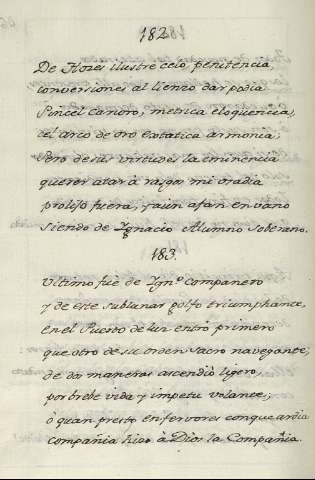 182.
De Hozes ilustre celo, penitencia,
conversiones al lienzo dar podia
Pincel canoro, metrica eloquencia,
el arco de oro extatica armonia;
Pero de sus virtudes la eminencia
querer atar à rasgos mi osadia
prolijo fuera, y aùn afan en vano
siendo de Ignacio Alumno soberano.
183.
Ultimo fuè de Ign.º compañero
y de este sublunar golfo triumphante,
en el Puerto de luz entrò primero
que otro de su orden sacro navegante,
de dos maneras ascendiò ligero,
por brebe vida y impetu volante;
ò quan presto en fervores con que ardia
compañia hizo à Dios la Compañia.